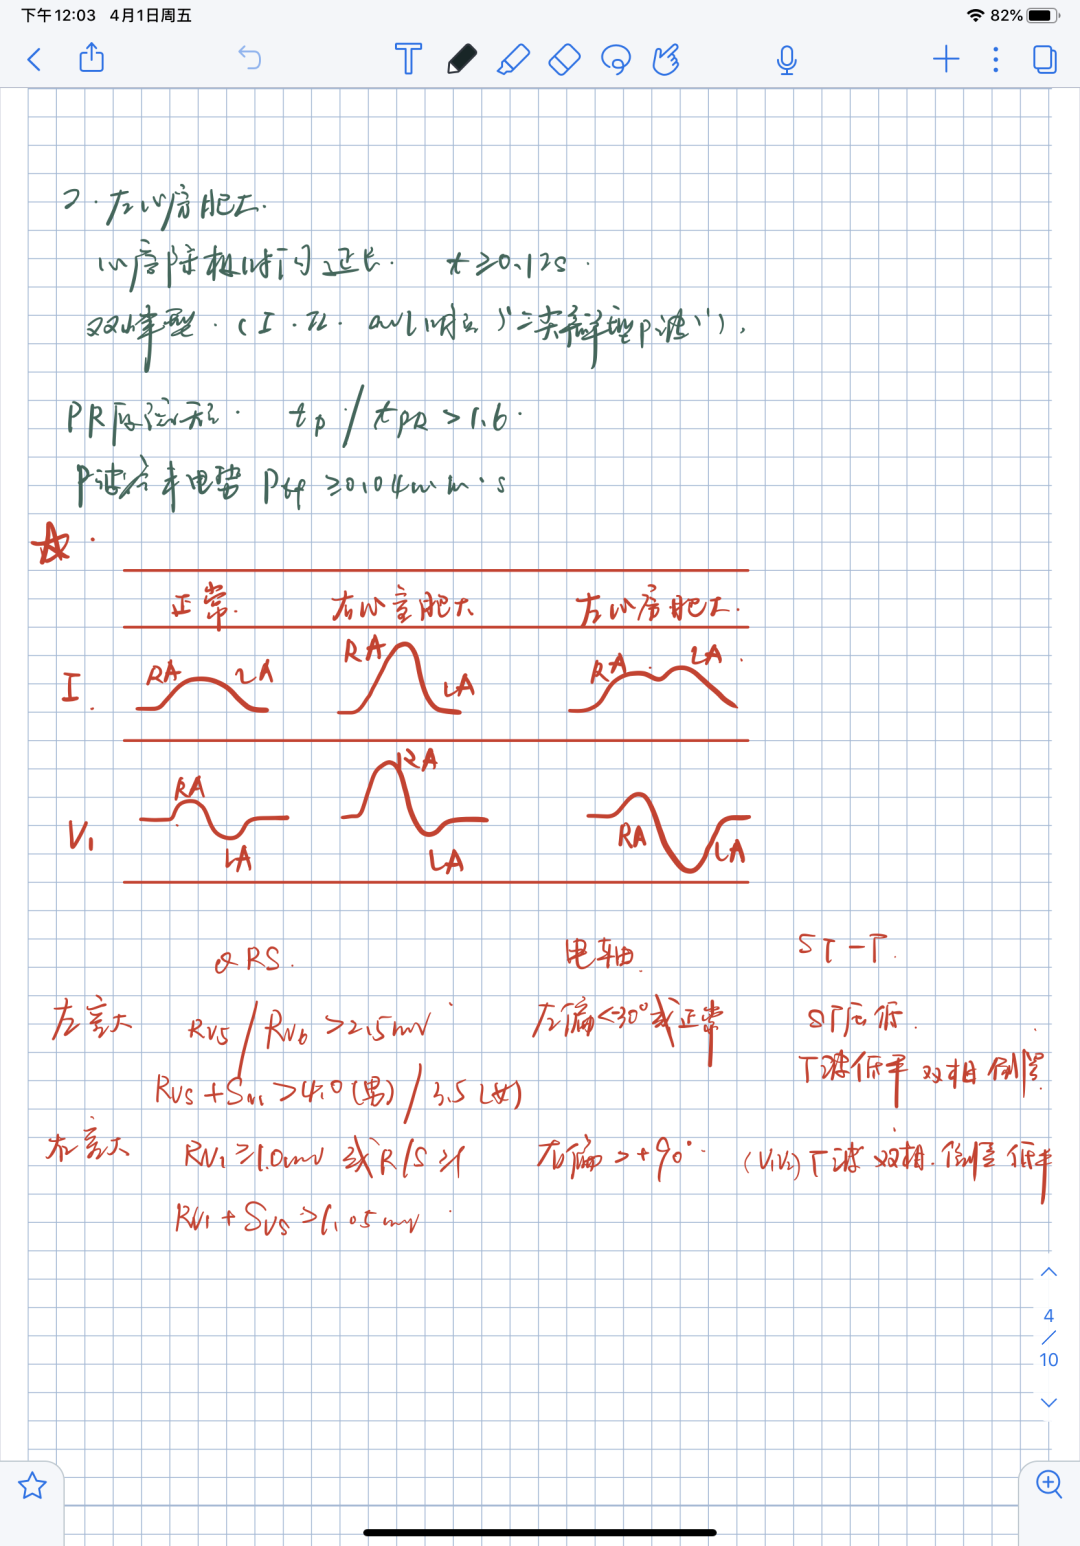 下午12:03 4月1日周五
82%
2. 左心房肥大.
心房除极时间延长. t≥0.12s.
双峰型.(I.II. aVL明显)"二尖瓣型P波").
PR段缩形. tP/tPR>1.6.
P波终末电势 Ptf ≥0.04mm·s
正常. 右心室肥大 左心房肥大.
I. RA LA RA LA RA LA
V1 RA LA RA LA RA LA
QRS. 电轴. ST-T.
左室大 RV5/RV6>2.5mV 左偏<-30°或正常 ST压低.
RV5+SV1>4.0(男)/3.5(女) T波低平 双相 倒置.
右室大 RV1≥1.0mV 或R/S≥1 右偏>+90° (V1V2)T波 双相.倒置 低平
RV1+SV5>1.05mV
4
/
10